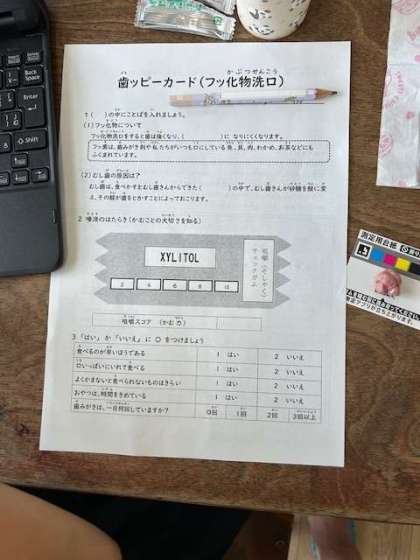 歯ッピーカード(フッ化物洗口)
1(　　)の中にことばを入れましょう。
(1)フッ化物について
フッ化物洗口をすると歯は強くなり、(　　　　)に なりにくくなります。
フッ素は、歯みがき剤や私たちがいつも口にしている魚、貝、肉、わかめ、お茶などにも
ふくまれています。
(2)むし歯の原因は?
むし歯は、食べかすとむし歯きんからできた(　　　　)の中で、むし歯きんが砂糖を酸に変
え、その酸が歯をとかすことによっておこります。
2 咀嚼のはたらき(かむことの大切さを知る)
XYLITOL
2 4 6 8 10
咀嚼(そしゃく)
チェックガム
咀嚼スコア(かむ力)
3「はい」か「いいえ」に ○ をつけましょう
食べるのが早いほうである 1 はい 2 いいえ
口いっぱいにいれて食べる 1 はい 2 いいえ
よくかまないと食べられないものはきらい 1 はい 2 いいえ
おやつは、時間をきめている 1 はい 2 いいえ
歯みがきは、一日何回していますか? 0回 1回 2回 3回以上
測定用台紙
Back
Space
Enter
Shift